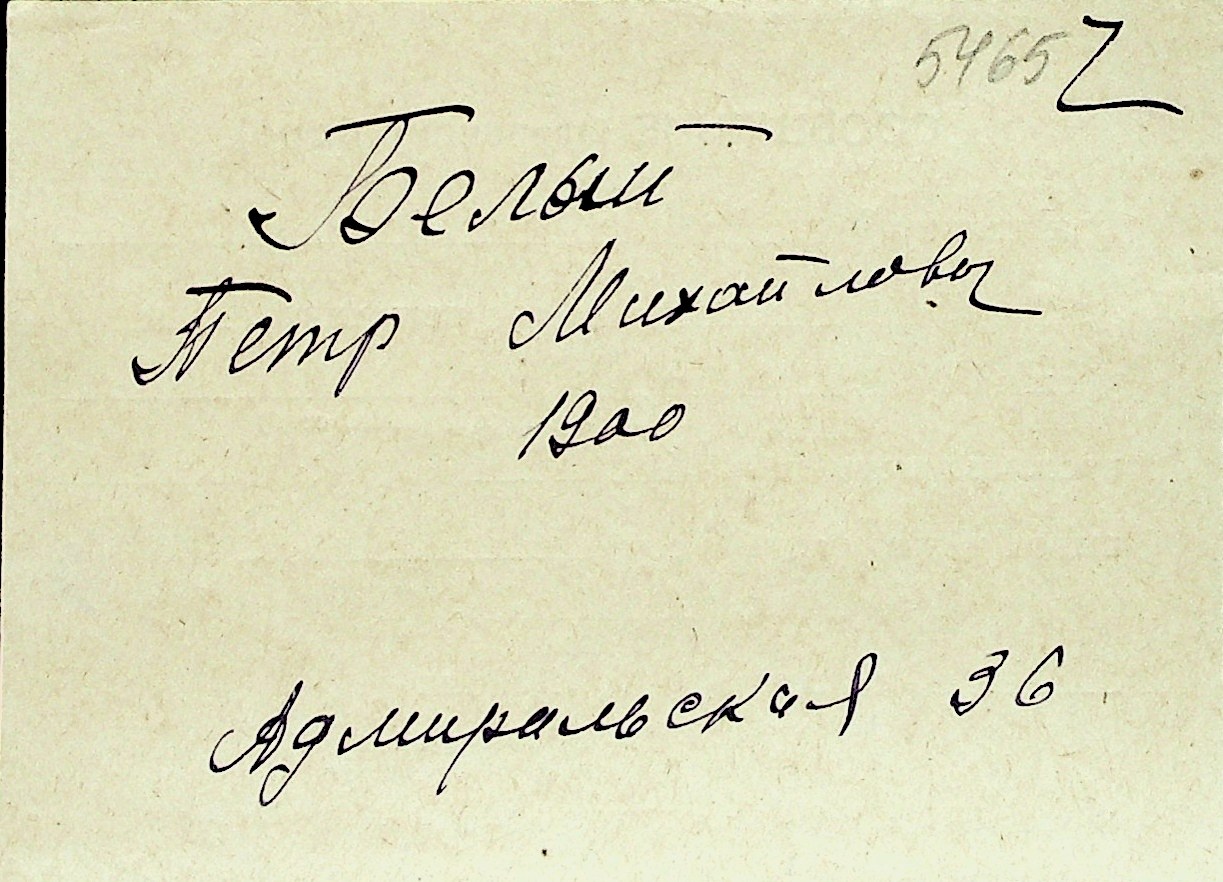 5465 Z
Белый
Петр Михайлович
1900
Адмиральская 36